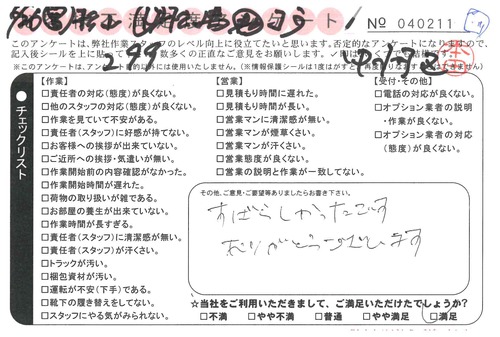 № 040211
このアンケートは、弊社作業スタッフのレベル向上に役立てたいと思います。否定的なアンケートになりますので、
【作業】
□責任者の対応(態度)が良くない。
□他のスタッフの対応(態度)が良くない。
□作業を見ていて不安がある。
□責任者(スタッフ)に好感が持てない。
□お客様への挨拶が出来ていない。
□ご近所への挨拶・気遣いが無い。
□作業開始前の内容確認がなかった。
□作業開始時間が遅れた。
□荷物の取り扱いが雑である。
□お部屋の養生が出来ていない。
□作業時間が長すぎる。
□責任者(スタッフ)に清潔感が無い。
□責任者(スタッフ)が汗くさい。
□トラックが汚い。
□梱包資材が汚い。
□運転が不安(下手)である。
□靴下の履き替えをしてない。
□スタッフにやる気がみられない。
【営業】
□見積もり時間に遅れた。
□見積もり時間が長い。
□営業マンに清潔感が無い。
□営業マンが煙草くさい。
□営業マンが汗くさい。
□営業態度が良くない。
□営業の説明と作業が一致してない。
【受付・その他】
□電話の対応が良くない。
□オプション業者の説明
・作業が良くない。
□オプション業者の対応
(態度)が良くない。
チェックリスト
その他、ご意見・ご要望等ありましたらお書き下さい。
すばらしかったです
ありがとうございます
☆当社をご利用いただきまして、ご満足いただけたでしょうか?
□不満 □やや不満 □普通 □やや満足 □満足